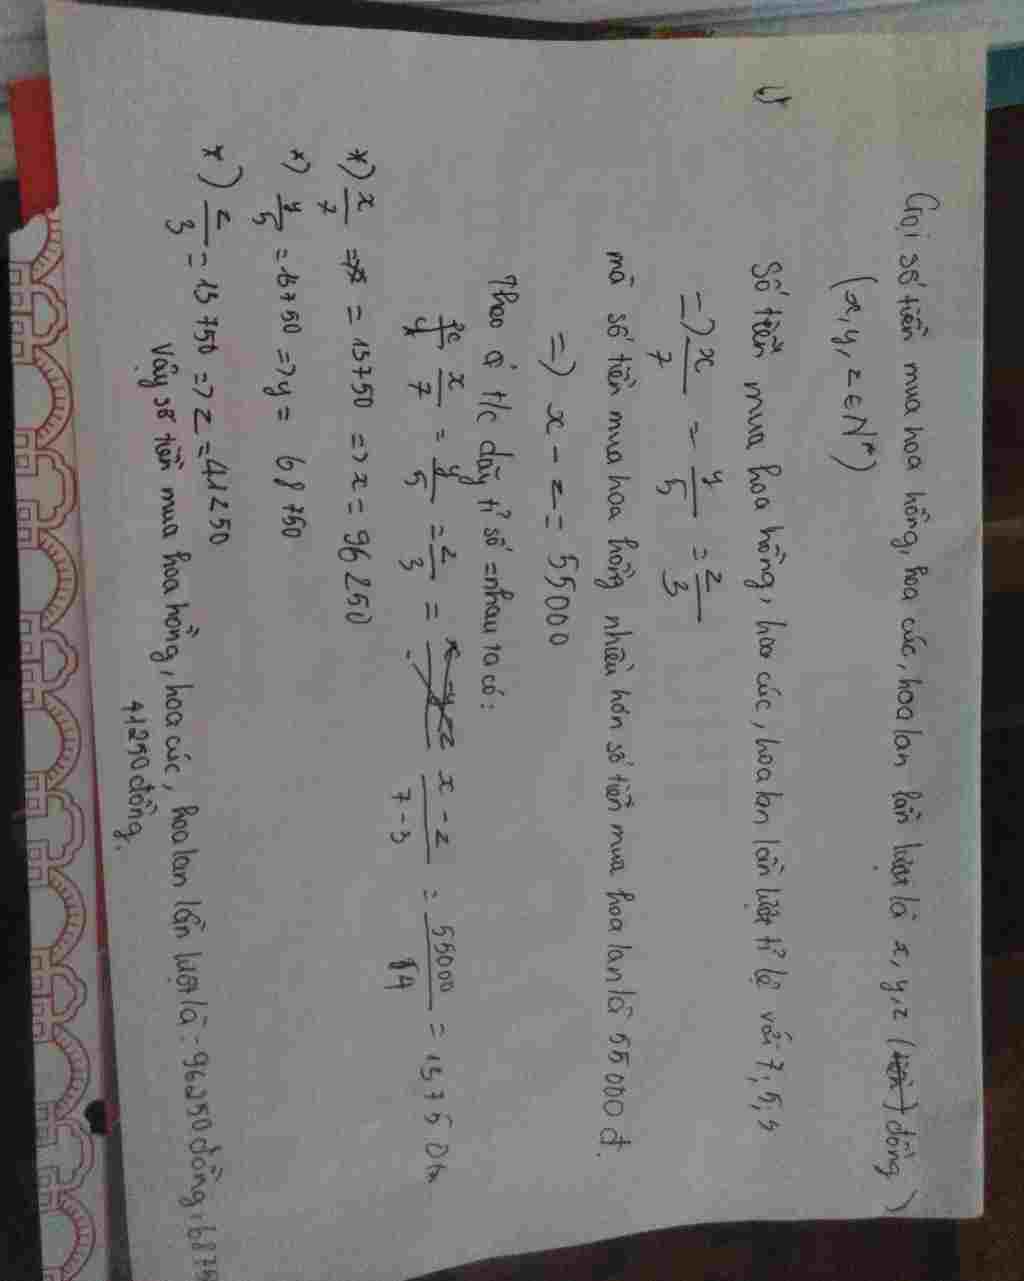 Gọi số tiền mua hoa hồng, hoa cúc, hoa lan lần lượt là x, y, z (đồng)
(x, y, z ∈ N*)
Số tiền mua hoa hồng, hoa cúc, hoa lan lần lượt tỉ lệ với 7; 5; 3
=> x/7 = y/5 = z/3
mà số tiền mua hoa hồng nhiều hơn số tiền mua hoa lan là 55000 đ.
=> x - z = 55000
Theo t/c dãy tỉ số = nhau ta có:
x/7 = y/5 = z/3 = x - z/7 - 3 = 55000/4 = 13750
*) x/7 = 13750 => x = 96250
*) y/5 = 13750 => y = 68750
*) z/3 = 13750 => z = 41250
Vậy số tiền mua hoa hồng, hoa cúc, hoa lan lần lượt là: 96250 đồng, 6875
41250 đồng.